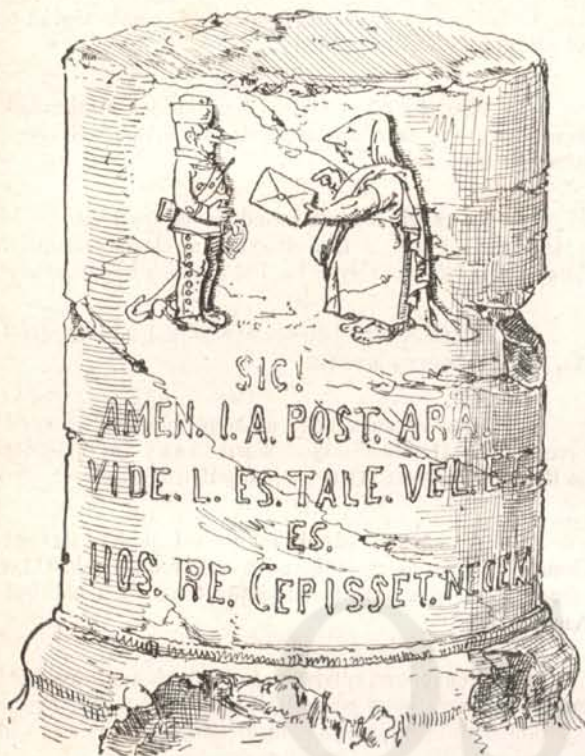 SIC!
AMEN. I. A. POST. ARA.
VIDE. L. ES. TALE. VEL. ET.
ES.
HOS. RE. CEPISSET. NECEM.